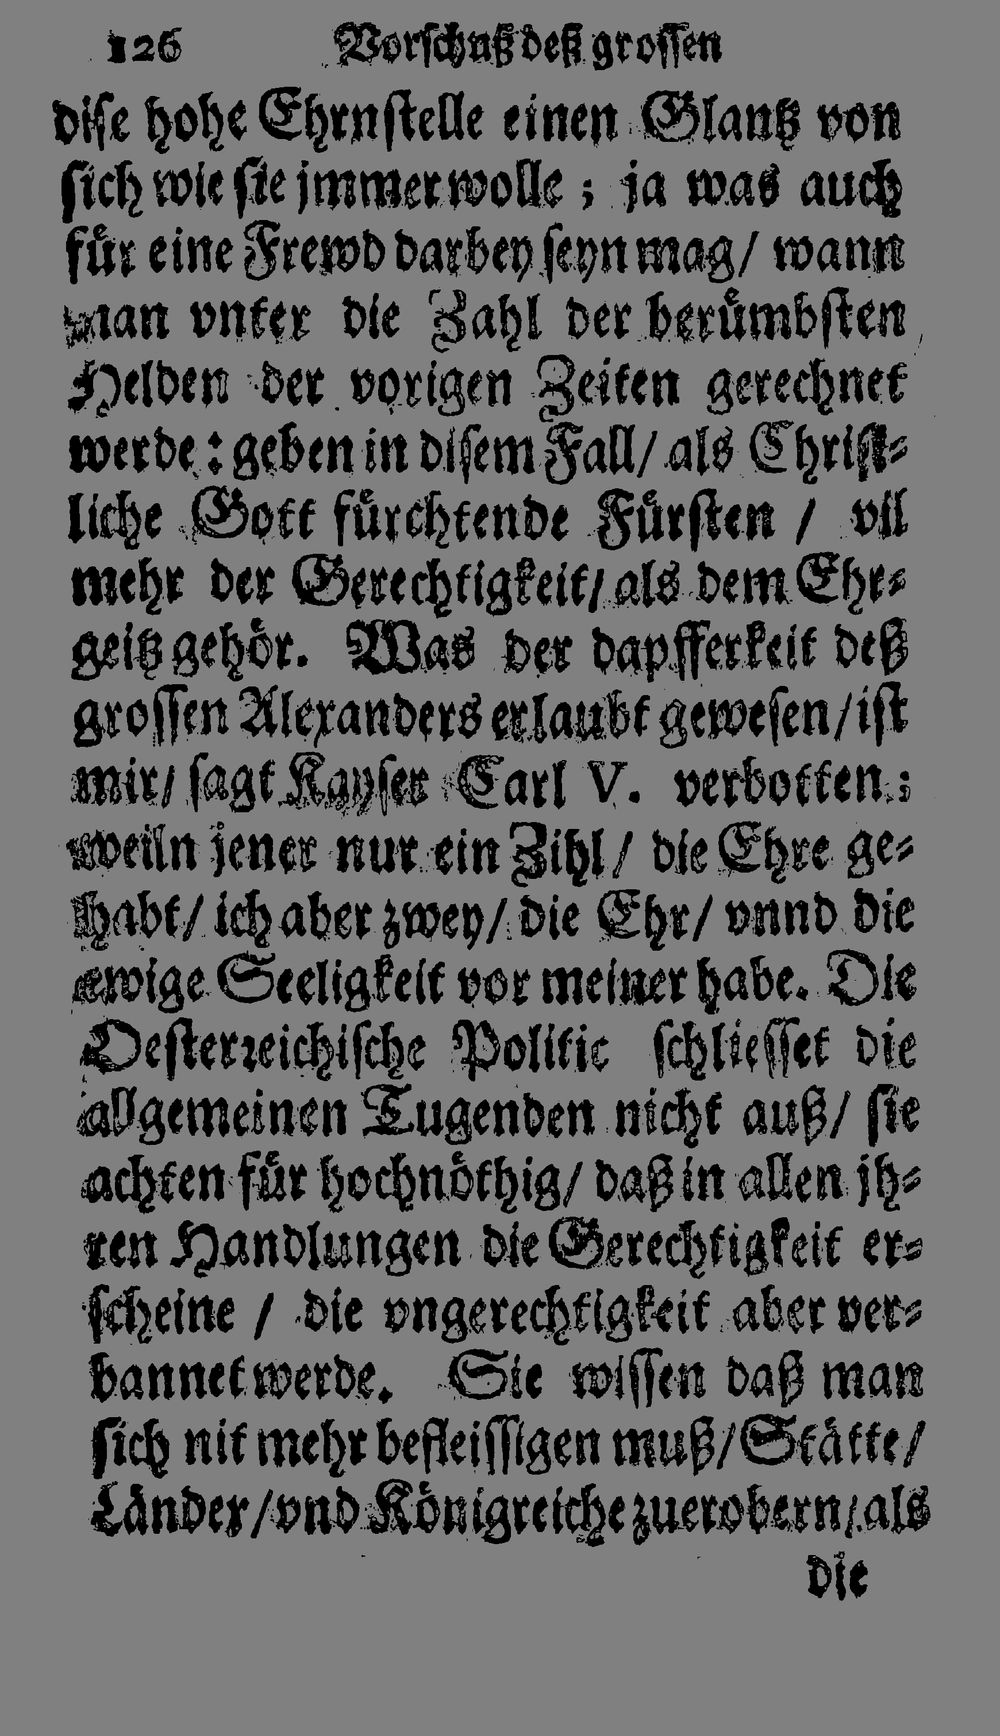 126 Vorschuß deß grossen
dise hohe Ehrnstelle einen Glantz von
sich wie sie jmmer wolle ; ja was auch
für eine Frewd darbey seyn mag / wann
man vnter die Zahl der berümbsten
Helden der vorigen Zeiten gerechnet
werde : geben in disem Fall / als Christ-
liche Gott fürchtende Fürsten / vil
mehr der Gerechtigkeit / als dem Ehr-
geitz gehör. Was der dapfferkeit deß
grossen Alexanders erlaubt gewesen / ist
mir / sagt Kayser Carl V. verbotten ;
weiln jener nur ein Zihl / die Ehre ge-
habt / ich aber zwey / die Ehr / vnnd die
ewige Seeligkeit vor meiner habe. Die
Oesterreichische Politic schliesset die
allgemeinen Tugenden nicht auß / sie
achten für hochnöthig / daß in allen jh-
ren Handlungen die Gerechtigkeit er-
scheine / die vngerechtigkeit aber ver-
bannet werde. Sie wissen daß man
sich nit mehr befleissigen muß / Stätte /
Länder / vnd Königreiche zuerobern / als
die